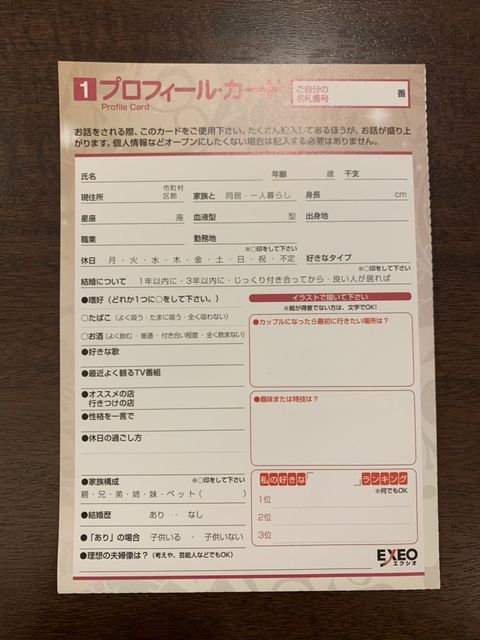 1 プロフィール・カード
Profile Card
ご自分の
名札番号
番
お話をされる際、このカードをご使用下さい。たくさん記入してあるほうが、お話が盛り上
がります。個人情報などオープンにしたくない場合は記入する必要はありません。
氏名 年齢 歳 干支
現住所 市町村 区郡 家族と ・ 同居・一人暮らし 身長 cm
星座 座 血液型 型 出身地
職業 勤務地
※○印をして下さい
休日 月・火・水・木・金・土・日・祝・不定 好きなタイプ
※○印をして下さい
結婚について 1年以内に・3年以内に・じっくり付き合ってから・良い人が居れば
●嗜好（どれか1つに○をして下さい。）
○たばこ（よく吸う・たまに吸う・全く吸わない）
○お酒（よく飲む・普通・付き合い程度・全く飲まない）
●好きな歌
●最近よく観るTV番組
●オススメの店
行きつけの店
●性格を一言で
●休日の過ごし方
●家族構成 ※○印をして下さい
親・兄・弟・姉・妹・ペット（ ）
●結婚歴 あり ・ なし
●「あり」の場合 子供いる ・ 子供いない
●理想の夫婦像は？（考えや、芸能人などでもOK）
イラストで描いて下さい
※絵が得意でない方は、文字でOK!
●カップルになったら最初に行きたい場所は？
●趣味または特技は？
私の好きな「 」ランキング
※何でもOK
1位
2位
3位
EXEO
エクシオ